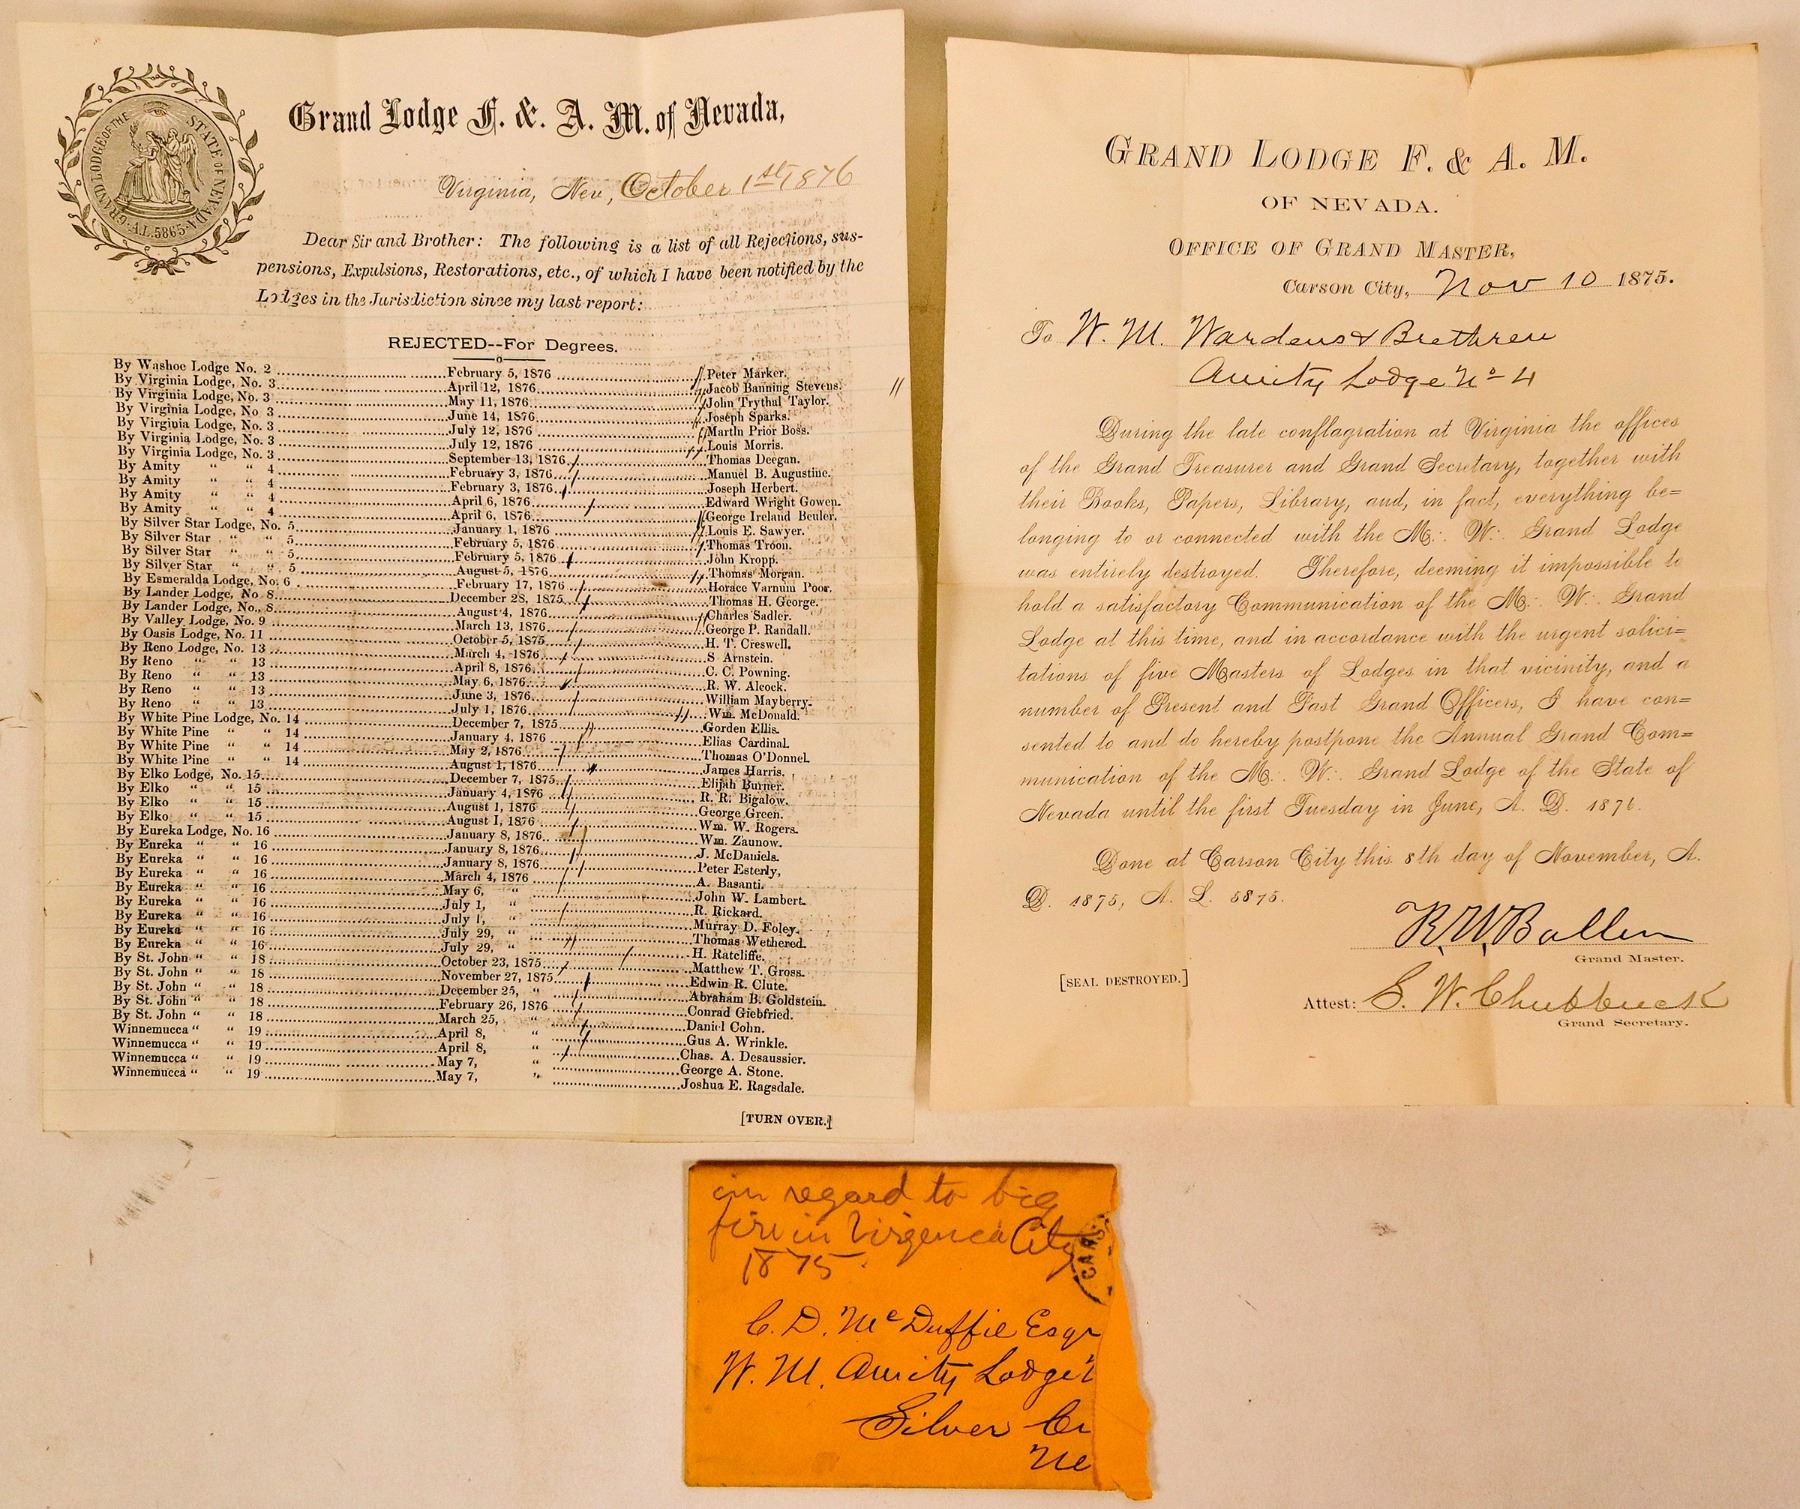 GRAND LODGE OF THE STATE OF NEVADA
A.L. 5865
Grand Lodge F. & A. M. of Nevada,
Virginia, Nev, October 1st 1876
Dear Sir and Brother: The following is a list of all Rejections, sus-
pensions, Expulsions, Restorations, etc., of which I have been notified by the
Lodges in the Jurisdiction since my last report:
REJECTED--For Degrees.
By Washoe Lodge No. 2 February 5, 1876 Peter Marker.
By Virginia Lodge, No. 3 April 12, 1876 Jacob Banning Stevens.
By Virginia Lodge, No. 3 May 11, 1876 John Trythal Taylor.
By Virginia Lodge, No 3 June 14, 1876 Joseph Sparks.
By Virginia Lodge, No. 3 July 12, 1876 Martin Prior Boss.
By Virginia Lodge, No. 3 July 12, 1876 Louis Morris.
By Virginia Lodge, No. 3 September 13, 1876 Thomas Deegan.
By Amity “ “ 4 February 3, 1876 Manuel B. Augustine.
By Amity “ “ 4 February 3, 1876 Joseph Herbert.
By Amity “ “ 4 April 6, 1876 Edward Wright Gowen.
By Amity “ “ 4 April 6, 1876 George Ireland Beuler.
By Silver Star Lodge, No. 5 January 1, 1876 Louis E. Sawyer.
By Silver Star “ “ 5 February 5, 1876 Thomas Troon.
By Silver Star “ “ 5 February 5, 1876 John Kropp.
By Silver Star “ “ 5 August 5, 1876 Thomas Morgan.
By Esmeralda Lodge, No. 6 February 17, 1876 Horace Varnum Poor.
By Lander Lodge, No 8 December 28, 1875 Thomas H. George.
By Lander Lodge, No., 8 August 4, 1876 Charles Sadler.
By Valley Lodge, No. 9 March 13, 1876 George P. Randall.
By Oasis Lodge, No. 11 October 5, 1875 H. T. Creswell.
By Reno Lodge, No. 13 March 4, 1876 S Arnstein.
By Reno “ “ 13 April 8, 1876 C. C. Powning.
By Reno “ “ 13 May 6, 1876 R. W. Alcock.
By Reno “ “ 13 June 3, 1876 William Mayberry.
By Reno “ “ 13 July 1, 1876 Wm. McDonald.
By White Pine Lodge, No. 14 December 7, 1875 Gorden Ellis.
By White Pine “ “ 14 January 4, 1876 Elias Cardinal.
By White Pine “ “ 14 May 2, 1876 Thomas O'Donnel.
By White Pine “ “ 14 August 1, 1876 James Harris.
By Elko Lodge, No. 15 December 7, 1875 Elijah Burner.
By Elko “ “ 15 January 4, 1876 R. R. Bigalow.
By Elko “ “ 15 August 1, 1876 George Green.
By Elko “ “ 15 August 1, 1876 Wm. W. Rogers.
By Eureka Lodge, No. 16 January 8, 1876 Wm. Zaunow.
By Eureka “ “ 16 January 8, 1876 J. McDaniels.
By Eureka “ “ 16 January 8, 1876 Peter Esterly,
By Eureka “ “ 16 March 4, 1876 A. Basanti.
By Eureka “ “ 16 May 6, “ John W. Lambert.
By Eureka “ “ 16 July 1, “ R. Rickard.
By Eureka “ “ 16 July 1, “ Murray D. Foley.
By Eureka “ “ 16 July 29, “ Thomas Wethered.
By Eureka “ “ 16 July 29, “ H. Ratcliffe.
By St. John “ “ 18 October 23, 1875 Matthew T. Gross.
By St. John “ “ 18 November 27, 1875 Edwin R. Clute.
By St. John “ “ 18 December 25, “ Abraham B. Goldstein.
By St. John “ “ 18 February 26, 1876 Conrad Giebfried.
By St. John “ “ 18 March 25, “ Daniel Cohn.
Winnemucca “ “ 19 April 8, “ Gus A. Wrinkle.
Winnemucca “ “ 19 April 8, “ Chas. A. Desaussier.
Winnemucca “ “ 19 May 7, “ George A. Stone.
Winnemucca “ “ 19 May 7, “ Joshua E. Ragsdale.
[TURN OVER.]
GRAND LODGE F. & A. M.
OF NEVADA.
OFFICE OF GRAND MASTER,
Carson City, Nov 10 1875.
To W. M. Wardens & Brethren
Amity Lodge No 4
During the late conflagration at Virginia the offices
of the Grand Treasurer and Grand Secretary, together with
their Books, Papers, Library, and, in fact, everything be=
longing to or connected with the M∴ W∴ Grand Lodge
was entirely destroyed. Therefore, deeming it impossible to
hold a satisfactory Communication of the M∴ W∴ Grand
Lodge at this time, and in accordance with the urgent solici=
tations of five Masters of Lodges in that vicinity, and a
number of Present and Past Grand Officers, I have con=
sented to and do hereby postpone the Annual Grand Com=
munication of the M∴ W∴ Grand Lodge of the State of
Nevada until the first Tuesday in June, A. D. 1876.
Done at Carson City this 8th day of November, A.
D. 1875, A. L. 5875.
R. W. Bollen
Grand Master.
[SEAL DESTROYED.]
Attest: S. W. Chubbuck
Grand Secretary.
in regard to big
fire in Virgenca City
1875.
CARS
C. D. McDuffie Esqr
W. M. Amity Lodge
Silver Ci
Ne